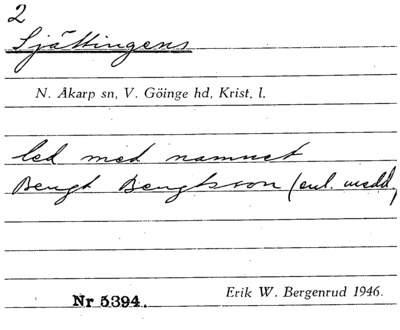 2
Sjättingens
N. Åkarp sn, V. Göinge hd, Krist. l.
led med namnet
Bengt Bengtsson (enl. medd.
Nr 5394.
Erik W. Bergenrud 1946.